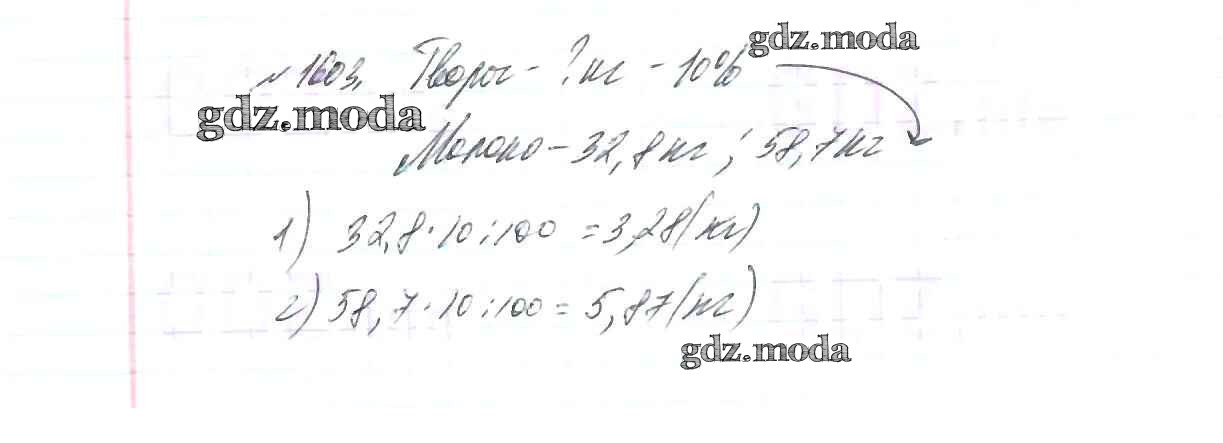 gdz.moda
№ 1603. Творог - ? кг - 10%
gdz.moda
Молоко - 32,8 кг ; 58,7 кг
1) 32,8 · 10 : 100 = 3,28 (кг)
2) 58,7 · 10 : 100 = 5,87 (кг)
gdz.moda